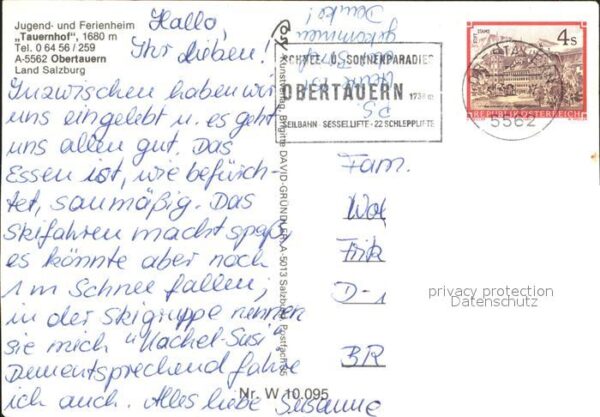 Jugend- und Ferienheim
"Tauernhof", 1680 m
Tel. 0 64 56 / 259
A-5562 Obertauern
Land Salzburg
Hallo,
Ihr Lieben!
Inzwischen haben wir
uns eingelebt u. es geht
uns allen gut. Das
Essen ist, wie befürch-
tet, saumäßig. Das
Skifahren macht Spaß,
es könnte aber noch
1 m Schnee fallen;
in der Skigruppe nennen
sie mich "Kachel-Susi".
Dementsprechend fahre
ich auch. Alles liebe Susanne
P.S.
Brief
gekommen
Danke!
Kunstverlag Brigitte DAVID-GRÜNDLER, A-5013 Salzburg, Postfach
Nr. W 10.095
SCHNEE- U. SONNENPARADIES
OBERTAUERN 1738 m
SEILBAHN - SESSELLIFTE - 22 SCHLEPPLIFTE
5562
STIFT STAMS
4 S
REPUBLIK ÖSTERREICH
Fam.
D-1
BR
privacy protection
Datenschutz